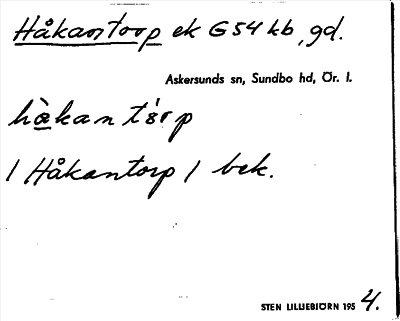 Håkantorp ek G54 kb, gd.
Askersunds sn, Sundbo hd, Ör. l.
hàkan tòrp
/ Håkantorp / bek.
STEN LILLIEBJÖRN 195 4.